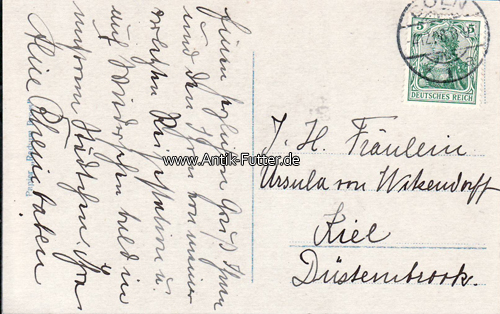 Einen herzlichen Gruß Ihnen
und den Ihren von meiner
Reisestation u.
auf Wiedersehn bald in
unserem Städtchen. Ihre
CÖLN
5 5
DEUTSCHES REICH
www.Antik-Futter.de
I. H. Fräulein
Ursula von Witzendorff
Kiel
Düsternbrook.